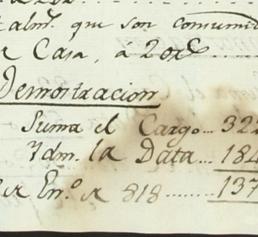 almS. que son consumid
Casa, á 20rs
Demostracion
Suma el Cargo... 322
Ydm. la Data... 184
En.º de 818........ 137